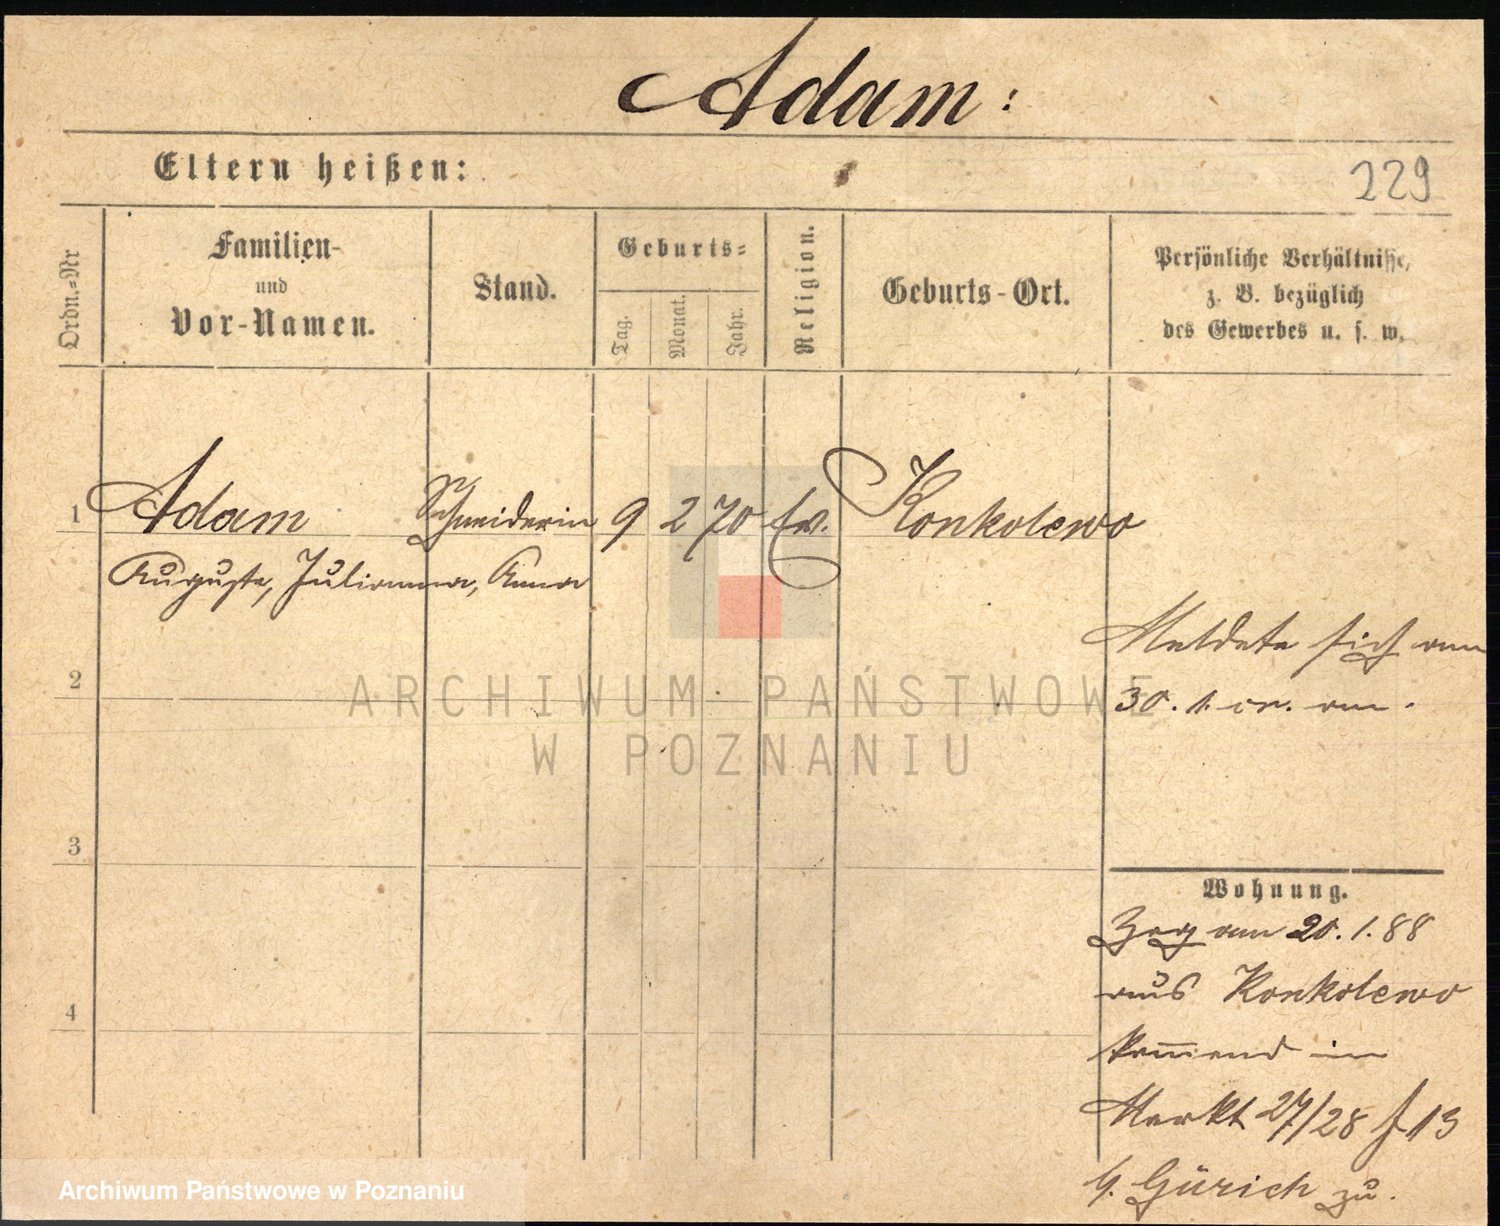 Adam:
Eltern heißen:
229
Ordn.-Nr
Familien-
und
Vor-Namen.
Stand.
Geburts-
Tag.
Monat.
Jahr.
Religion.
Geburts-Ort.
Persönliche Verhältnisse,
z. B. bezüglich
des Gewerbes u. s. w.
1 Adam Schneiderin 9 2 70 Ev. Konkolewo
Auguste, Julianna, Anna
Meldete sich am
2
30. 1. cr. an.
ARCHIWUM PAŃSTWOWE
W POZNANIU
3
Wohnung.
Zog am 20. 1. 88
aus Konkolewo
4
kommend in
Markt 27/28
Gürich zu.
Archiwum Państwowe w Poznaniu